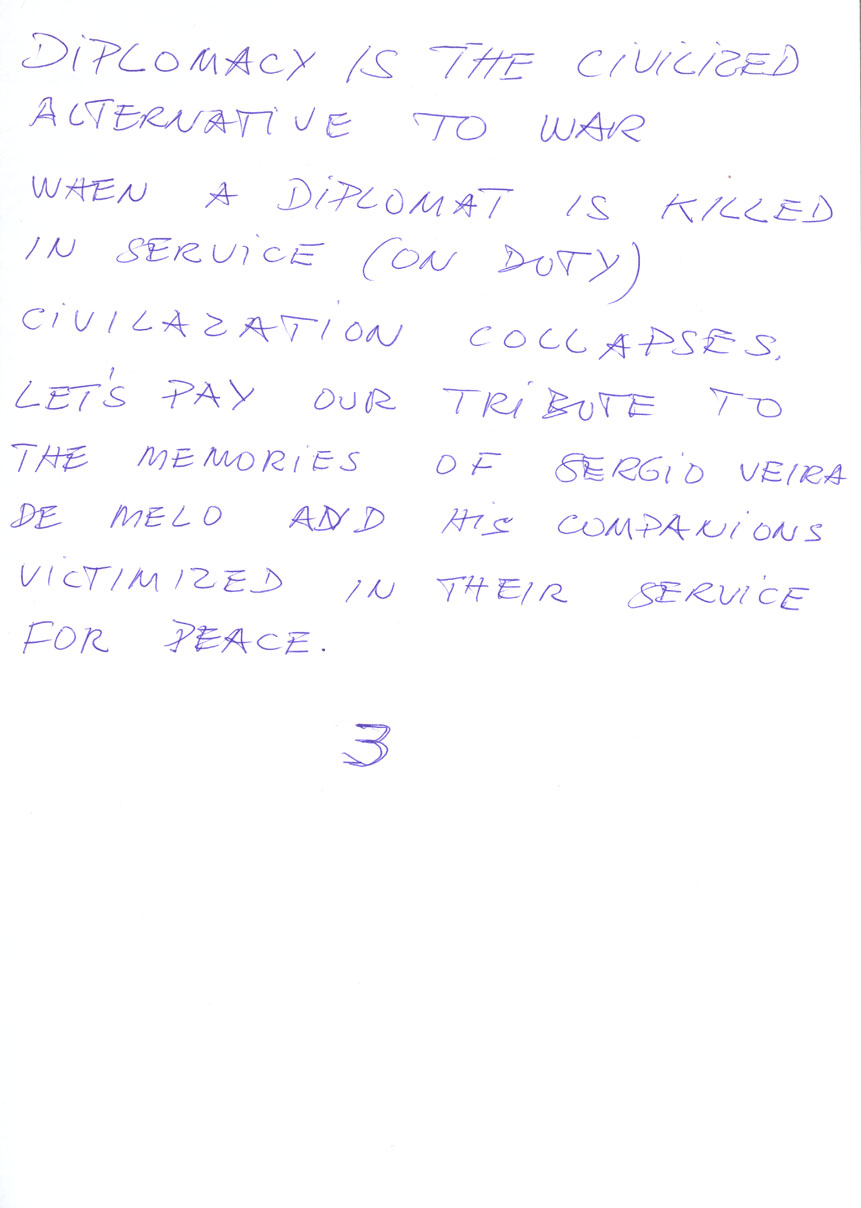 DiPLOMACY IS THE CiVILIZED
ALTERNATiVE TO WAR
WHEN A DiPLOMAT IS KILLED
IN SERViCE (ON DUTY)
CiVILAZATION COLLAPSES.
LET'S PAY OUR TRiBUTE TO
THE MEMORiES OF SERGiO VEIRA
DE MELO AND HiS COMPANiONS
ViCTIMIZED IN THEIR SERViCE
FOR PEACE.
3